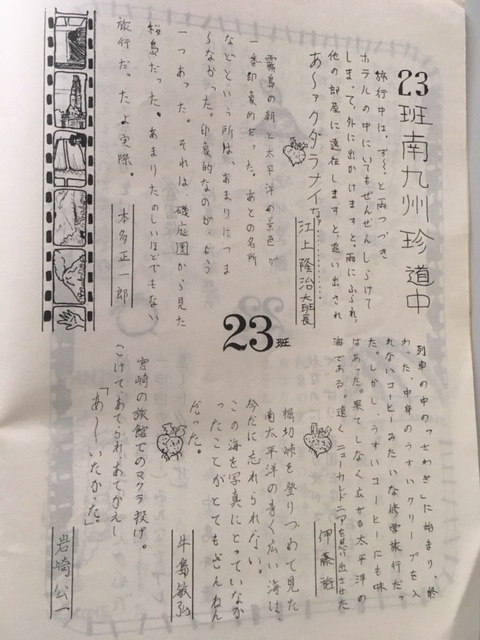 23班南九州珍道中
旅行中は、ず〜と雨つづき
ホテルの中にいてもぜんぜんしらけて
しまって、外に出かけますと、雨にふられ、
他の部屋に遠征しますと追い出され
あ〜ァクダラナイな。
江上隆治大班長
霧島の朝と太平洋の景色が
一番印象的だった。あとの名所
などという所は、あまりにつま
らなかった。印象的なのが、もう
一つあった。それは、磯庭園から見た
桜島だった。あまりたのしいほどでもない
旅行だ。たよ実際。
本多正一郎
23班
列車の中の「さわぎ」に始まり、終
わった、中身のうすいクリープを入
れないコーヒーみたいな修学旅行だっ
た。しかし、うすいコーヒーにも味
はあった。果てしなく広がる太平洋の
海である。遠くニューカレドニアを思い出させた
伊藤
堀切峠を登りつめて見た
南太平洋の青く広い海は、
今だに忘れられない。
この海を写真にとっていなか
ったことがとてもざんねん
だった。
牛島敏弘
宮崎の旅館でのマクラ投げ。
こけて、あてられあてかえし
「あ〜いたかった」
岩崎公一